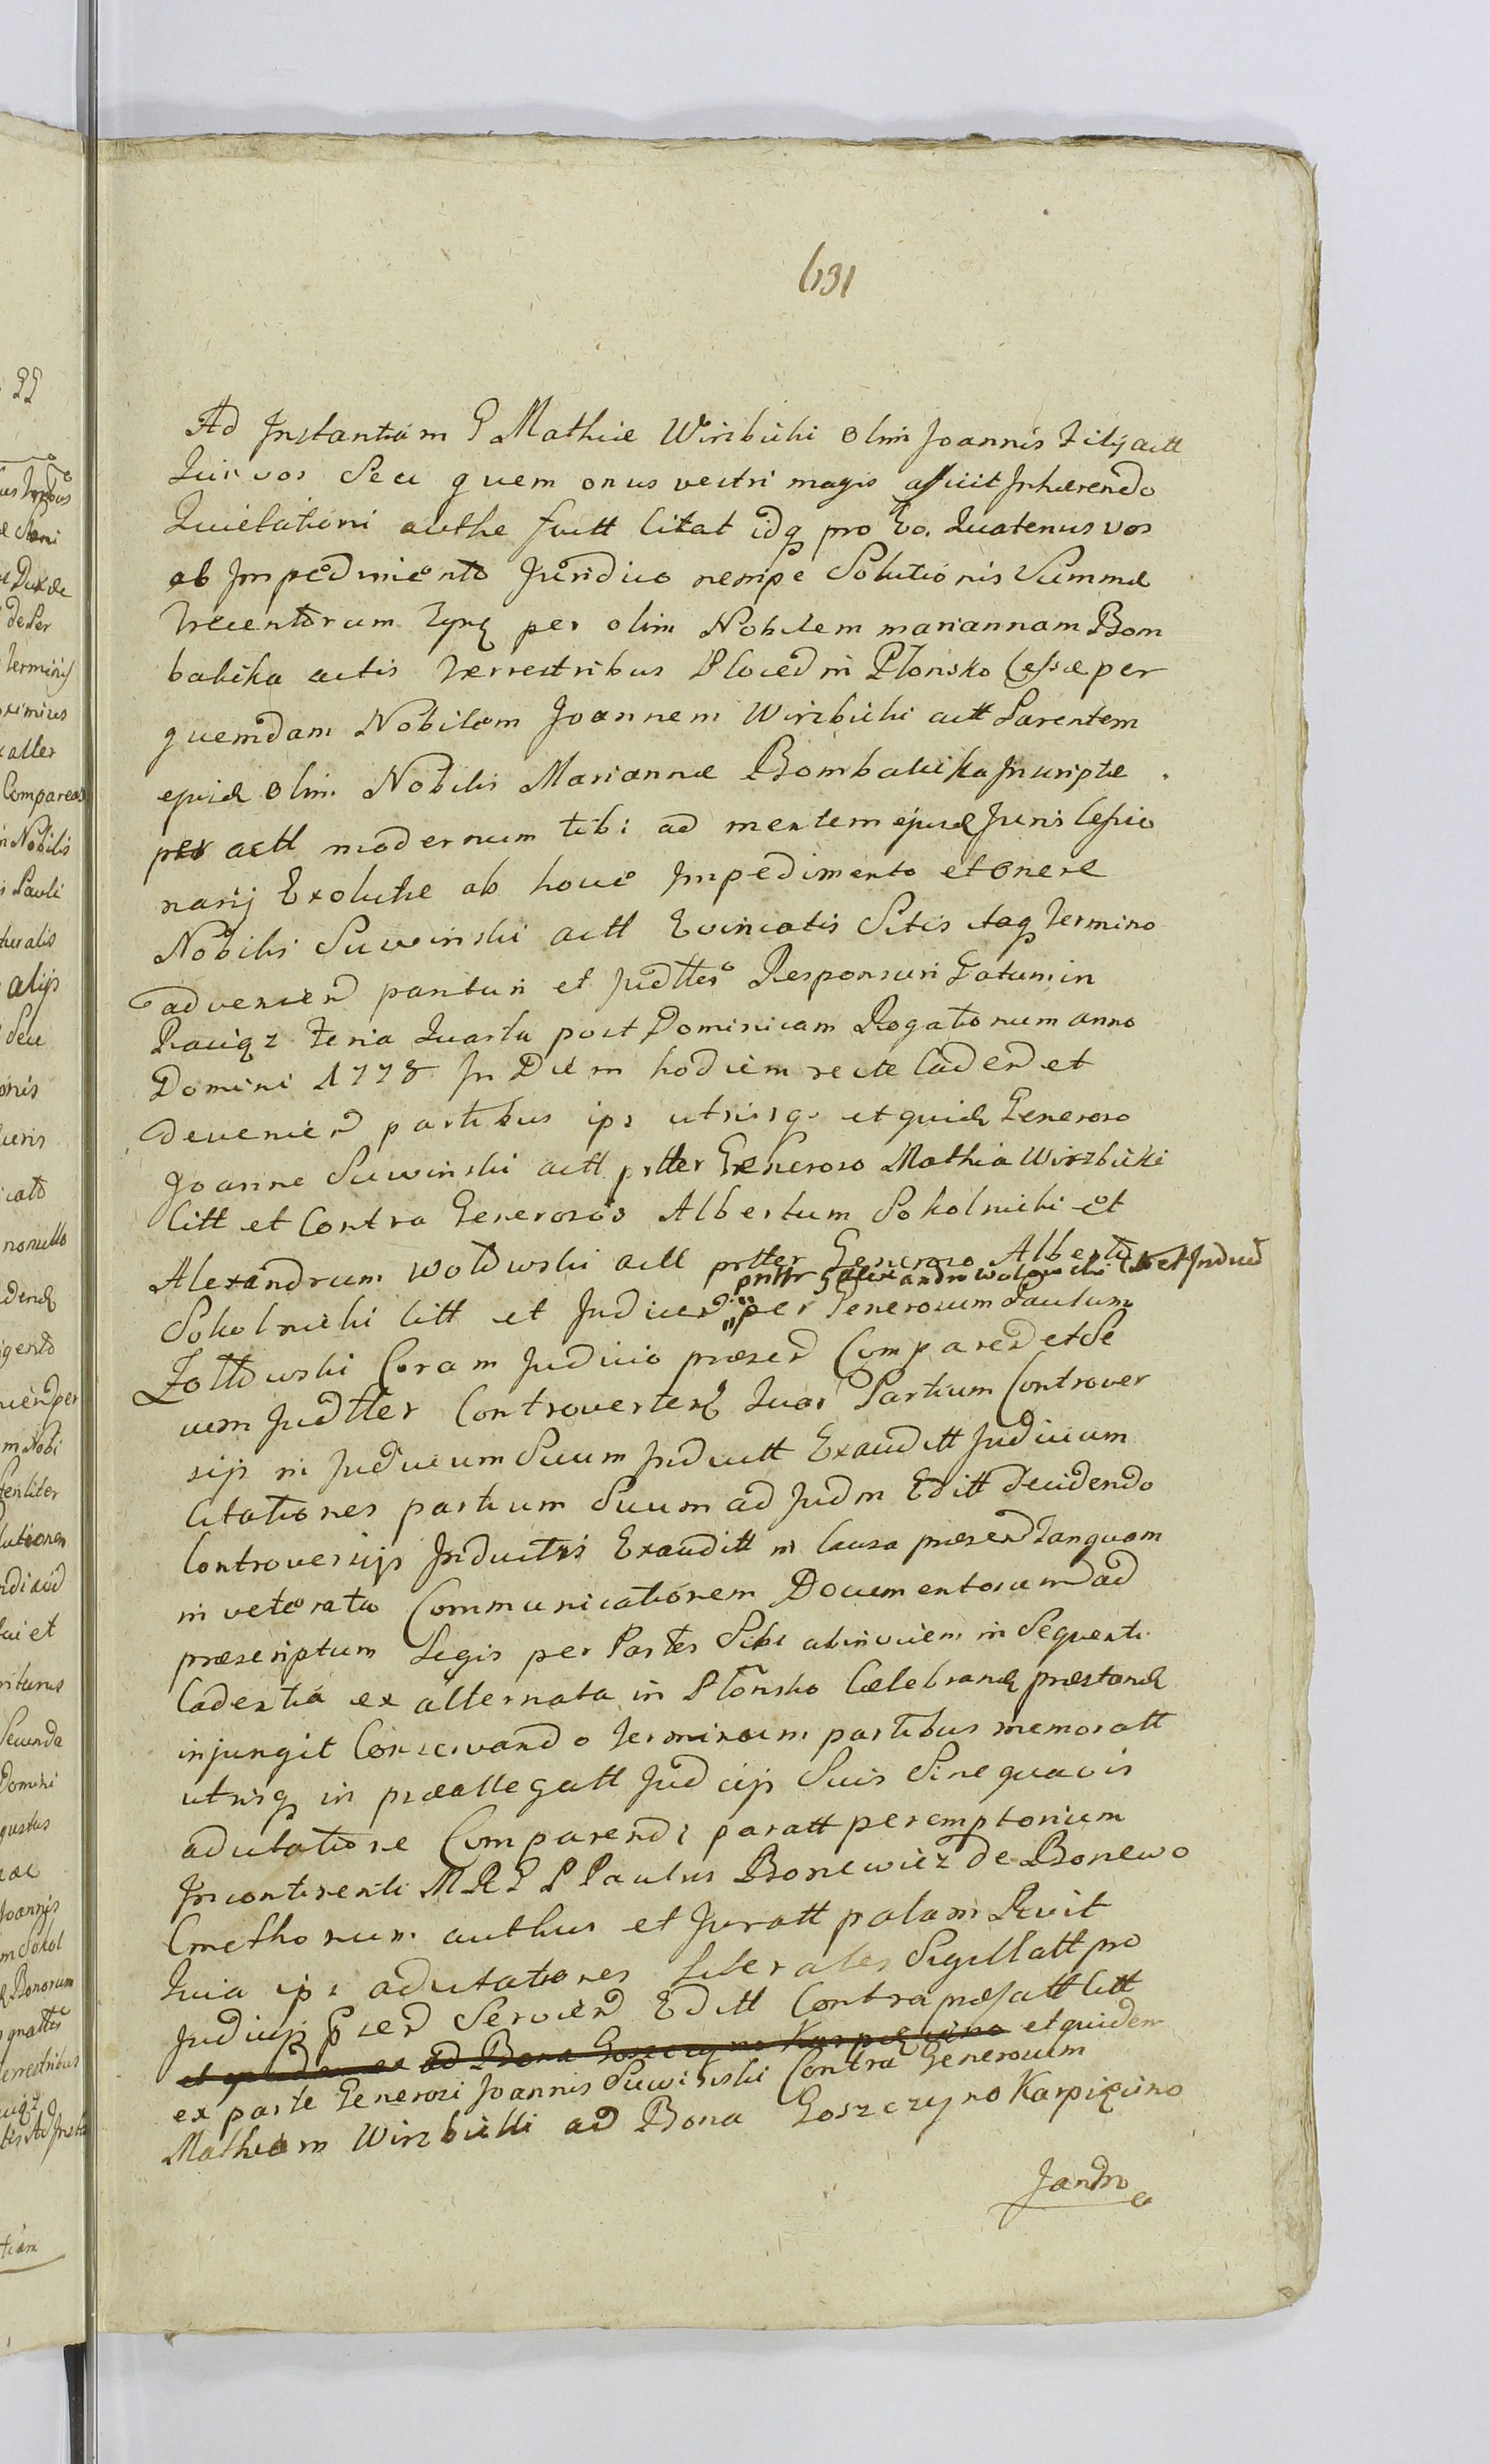 631
Ad Instantiam G Mathiæ Wirzbicki olim Joannis Filij actt
Qui vos Seu quem onus vestri magis afficit Inhærendo
Quietationi authe fuitt Citat idq pro Eo. Quatenus vos
ab Impedimento Juridico nempe Solutionis Summæ
Trecentorum per olim Nobilem mariannam Bom
balicka actis Terrestribus Ploced in Płonsko Cessæ per
quemdam Nobilem Joannem Wirzbicki actt Parentem
ejusd olim Nobilis Mariannæ Bombalicka Inscriptæ
per actt modernum tibi ad mentem ejusd Juris Cessio
narij Exolutæ ab hocce Impedimento et onere
Nobilis Suwinski actt Evincatis Sitis itaq Termino
advenien parituri et Judtter Responsuri Datum in
Raciąz Feria Quarta post Dominicam Rogationum anno
Domini 1778 In Diem hodiern recte Caden et
devenien partibus ips utrisq. et quid Generoso
Joanne Suwinski actt prtter Generoso Mathia Wirzbicki
Citt et Contra Generosos Albertum Sokolnicki et
Alexandrum Wołowski actt prtter Generoso Alberto
prttr G Alexandro Wołowski Citt et Inducd
Sokolnicki Citt et Inducen per Generosum Paulum
Zołtowski Coram Judicio præsen Comparen et Se
cum Judtter Controverten Quas Partium Controver
sijs in Judicium Suum Inductt Exauditt Judicium
Citationes partium Suum ad Judm Editt decidendo
Controversijs Inductis Exauditt in Causa præsen Tanquam
in veterata Communicationem Documentorum ad
præscriptum Legis per Partes Sibi abinvicem in Sequenti
Cadentia ex alternata in Płonsko Cælebrand præstand
injungit Conservando Terminum partibus memoratt
utrisq in præallegatt Judcijs Suis Sine quavis
adcitatione Comparendi paratt peremptorium
Incontinenti MRGP Paulus Bonewicz de Bonewo
Cmethonum authus et Juratt palam Rcuit
Quia ips adcitationes Literales Sigillatt pro
Judicijs præsen Servien Editt Contra præfatt Citt
et quidem ex ad Bona Goszczyno Karpięcino et quidem
ex parte Generosi Joannis Suwinski Contra Generosum
Mathiam Wirzbicki ad Bona Goszczyno Karpięcino